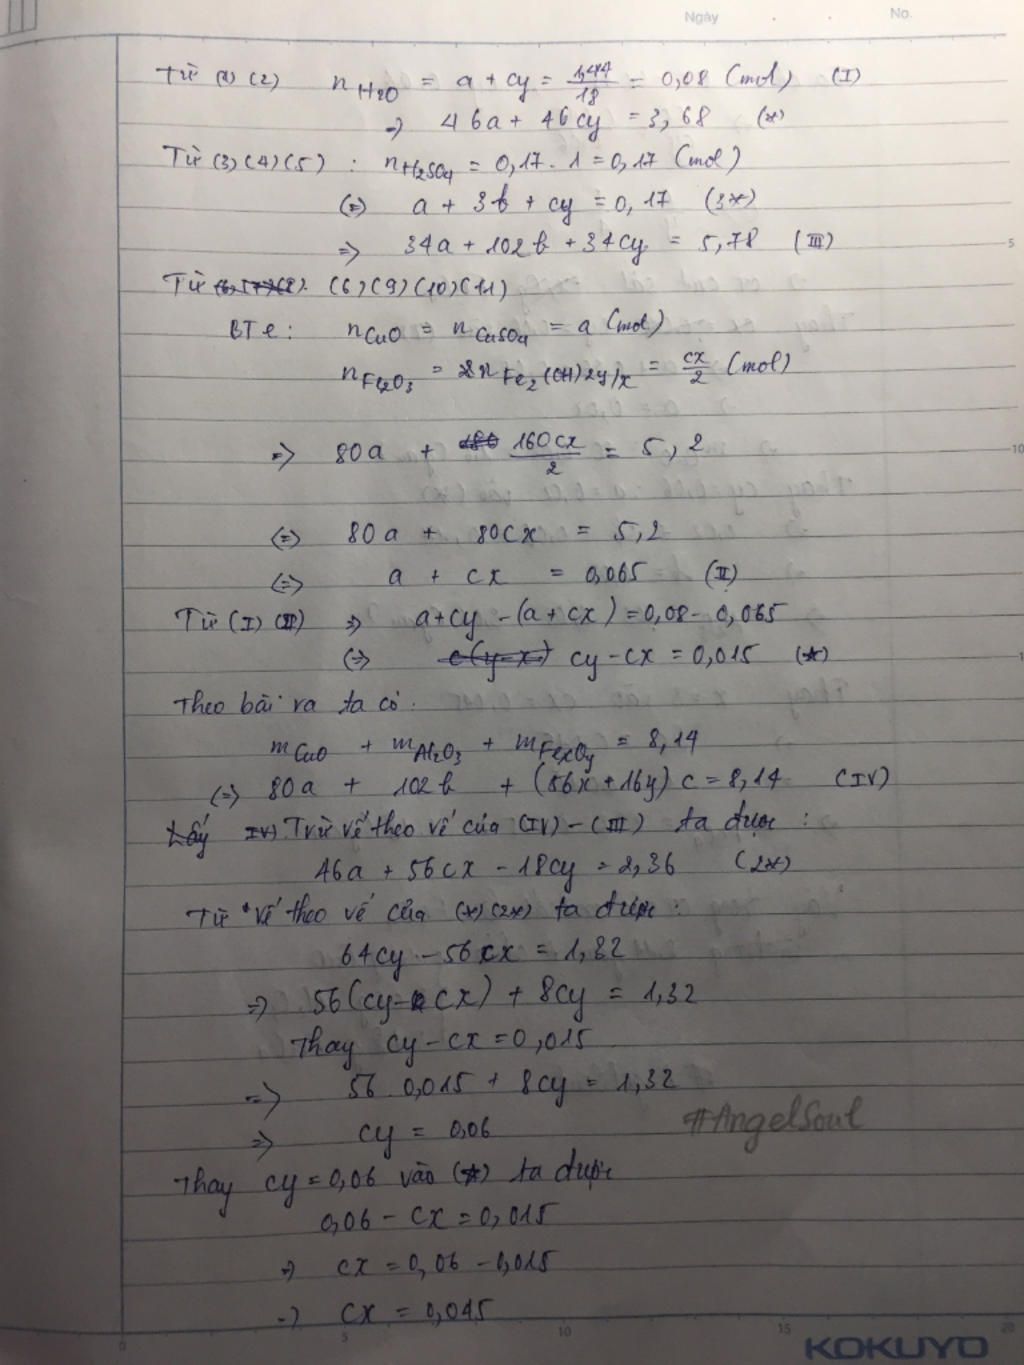 Ngày No.
Từ (1) (2) nH2O = a + cy = 1,44/18 = 0,08 (mol) (I)
=> 46a + 46cy = 3,68 (*)
Từ (3) (4) (5) : nH2SO4 = 0,17 . 1 = 0,17 (mol)
(=) a + 3b + cy = 0,17 (3*)
=> 34a + 102b + 34cy = 5,78 (III)
5
Từ (6) (9) (10) (11)
BTe: nCuO = nCuSO4 = a (mol)
nFe2O3 = nFe2(OH)2y/x = cx/2 (mol)
=> 80a + 160cx/2 = 5,2
10
(=> 80a + 80cx = 5,2
(=> a + cx = 0,065 (II)
Từ (I) (II) => a+cy - (a+cx) = 0,08 - 0,065
(=> c(y-x) cy - cx = 0,015 (*)
Theo bài ra ta có :
mCuO + mAl2O3 + mFexOy = 8,14
(=> 80a + 102b + (56x + 16y) c = 8,14 (IV)
Lấy IV) Trừ vế theo vế của (IV) - (III) ta được :
46a + 56cx - 18cy = 2,36 (2*)
Từ vế theo vế của (*) (2*) ta được :
64cy - 56cx = 1,32
=> 56(cy - cx) + 8cy = 1,32
Thay cy - cx = 0,015
=> 56 . 0,015 + 8cy = 1,32
=> cy = 0,06
#AngelSoul
Thay cy = 0,06 vào (*) ta được
0,06 - cx = 0,015
=> cx = 0,06 - 0,015
=> cx = 0,045
0 5 10 15 20
KOKUYO